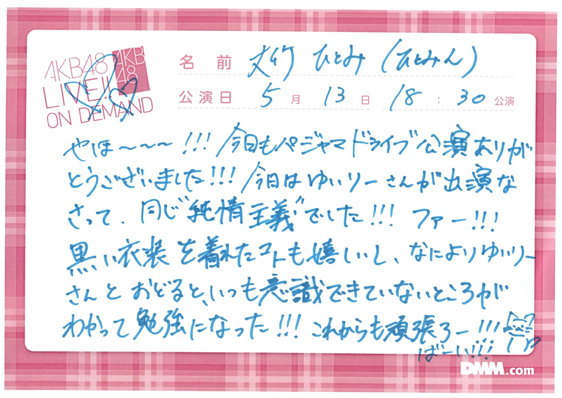 AKB48 LIVE!! ON DEMAND
AKB48
名前 大竹 ひとみ（ひとみん）
公演日 5月 13日 18：30公演
やほ～～～!!! 今日もパジャマドライブ公演ありが
とうございました!!! 今日はゆいりーさんが出演な
さって、同じ"純情主義"でした!!! ファー!!!
黒い衣装を着れたコトも嬉しいし、なによりゆいりー
さんとおどると、いつも意識できていないところが
わかって勉強になった!!! これからも頑張ろー!!!
ばーい!!!
DMM.com